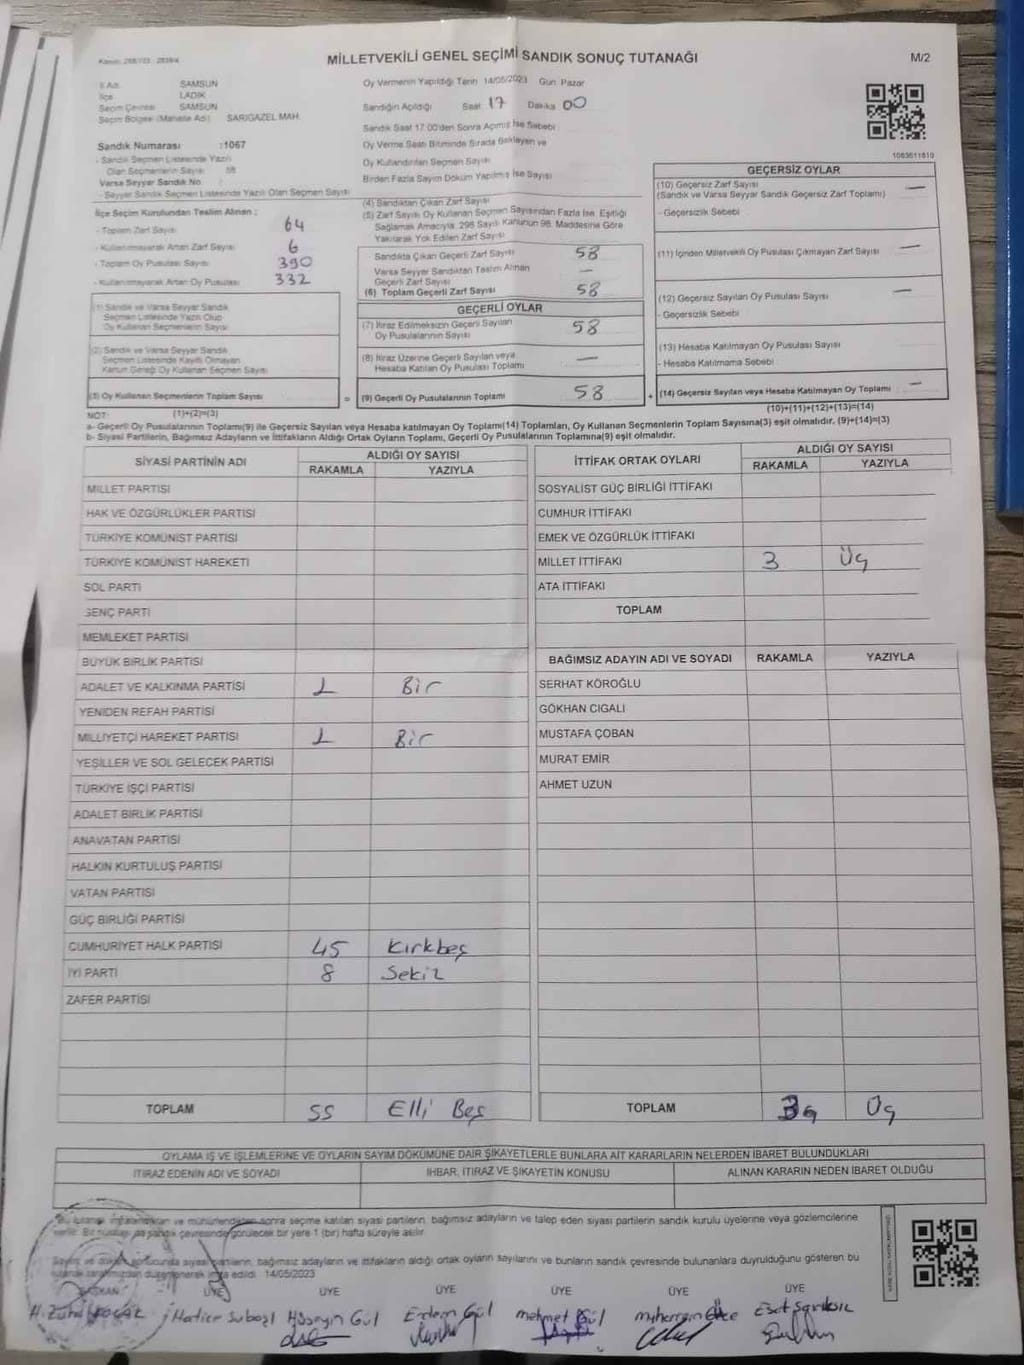 MİLLETVEKİLİ GENEL SEÇİMİ SANDIK SONUÇ TUTANAĞI
M/2
İl Adı SAMSUN
İlçe LADİK
Seçim Çevresi SAMSUN
Seçim Bölgesi (Mahalle Adı) SARIGAZEL MAH.
Oy Vermenin Yapıldığı Tarih 14/05/2023 Gün Pazar
Sandığın Açıldığı Saat 17 Dakika 00
Sandık Saat 17:00'den Sonra Açılmış İse Sebebi
Oy Verme Saati Bitiminde Sırada Bekleyen ve
Oy Kullandırılan Seçmen Sayısı
Birden Fazla Sayım Döküm Yapılmış İse Sayısı
1083611610
Sandık Numarası :1067
- Sandık Seçmen Listesinde Yazılı
Olan Seçmenlerin Sayısı 58
Varsa Seyyar Sandık No
- Seyyar Sandık Seçmen Listesinde Yazılı Olan Seçmen Sayısı
İlçe Seçim Kurulundan Teslim Alınan ;
- Toplam Zarf Sayısı 64
- Kullanılmayarak Artan Zarf Sayısı 6
- Toplam Oy Pusulası Sayısı 390
- Kullanılmayarak Artan Oy Pusulası 332
(1) Sandık ve Varsa Seyyar Sandık
Seçmen Listesinde Yazılı Olup
Oy Kullanan Seçmenlerin Sayısı
(2) Sandık ve Varsa Seyyar Sandık
Seçmen Listesinde Kayıtlı Olmayan
Kanun Gereği Oy Kullanan Seçmen Sayısı
(3) Oy Kullanan Seçmenlerin Toplam Sayısı =
(1)+(2)=(3)
(4) Sandıktan Çıkan Zarf Sayısı
(5) Zarf Sayısı Oy Kullanan Seçmen Sayısından Fazla İse, Eşitliği
Sağlamak Amacıyla, 298 Sayılı Kanunun 98. Maddesine Göre
Yakılarak Yok Edilen Zarf Sayısı
Sandıkta Çıkan Geçerli Zarf Sayısı 58
Varsa Seyyar Sandıktan Teslim Alınan
Geçerli Zarf Sayısı —
(6) Toplam Geçerli Zarf Sayısı 58
GEÇERLİ OYLAR
(7) İtiraz Edilmeksizin Geçerli Sayılan
Oy Pusulalarının Sayısı 58
(8) İtiraz Üzerine Geçerli Sayılan veya
Hesaba Katılan Oy Pusulası Toplamı —
(9) Geçerli Oy Pusulalarının Toplamı 58 +
GEÇERSİZ OYLAR
(10) Geçersiz Zarf Sayısı —
(Sandık ve Varsa Seyyar Sandık Geçersiz Zarf Toplamı)
- Geçersizlik Sebebi
(11) İçinden Milletvekili Oy Pusulası Çıkmayan Zarf Sayısı —
(12) Geçersiz Sayılan Oy Pusulası Sayısı —
- Geçersizlik Sebebi
(13) Hesaba Katılmayan Oy Pusulası Sayısı
- Hesaba Katılmama Sebebi
(14) Geçersiz Sayılan veya Hesaba Katılmayan Oy Toplamı —
(10)+(11)+(12)+(13)=(14)
NOT:
a- Geçerli Oy Pusulalarının Toplamı(9) ile Geçersiz Sayılan veya Hesaba katılmayan Oy Toplamı(14) Toplamları, Oy Kullanan Seçmenlerin Toplam Sayısına(3) eşit olmalıdır. (9)+(14)=(3)
b- Siyasi Partilerin, Bağımsız Adayların ve İttifakların Aldığı Ortak Oyların Toplamı, Geçerli Oy Pusulalarının Toplamına(9) eşit olmalıdır.
SİYASİ PARTİNİN ADI ALDIĞI OY SAYISI
RAKAMLA YAZIYLA
MİLLET PARTİSİ
HAK VE ÖZGÜRLÜKLER PARTİSİ
TÜRKİYE KOMÜNİST PARTİSİ
TÜRKİYE KOMÜNİST HAREKETİ
SOL PARTİ
GENÇ PARTİ
MEMLEKET PARTİSİ
BÜYÜK BİRLİK PARTİSİ
ADALET VE KALKINMA PARTİSİ 1 Bir
YENİDEN REFAH PARTİSİ
MİLLİYETÇİ HAREKET PARTİSİ 1 Bir
YEŞİLLER VE SOL GELECEK PARTİSİ
TÜRKİYE İŞÇİ PARTİSİ
ADALET BİRLİK PARTİSİ
ANAVATAN PARTİSİ
HALKIN KURTULUŞ PARTİSİ
VATAN PARTİSİ
GÜÇ BİRLİĞİ PARTİSİ
CUMHURİYET HALK PARTİSİ 45 Kırkbeş
İYİ PARTİ 8 Sekiz
ZAFER PARTİSİ
TOPLAM 55 Elli Beş
İTTİFAK ORTAK OYLARI ALDIĞI OY SAYISI
RAKAMLA YAZIYLA
SOSYALİST GÜÇ BİRLİĞİ İTTİFAKI
CUMHUR İTTİFAKI
EMEK VE ÖZGÜRLÜK İTTİFAKI
MİLLET İTTİFAKI 3 Üç
ATA İTTİFAKI
TOPLAM
BAĞIMSIZ ADAYIN ADI VE SOYADI RAKAMLA YAZIYLA
SERHAT KÖROĞLU
GÖKHAN CIGALI
MUSTAFA ÇOBAN
MURAT EMİR
AHMET UZUN
TOPLAM 3 Üç
OYLAMA İŞ VE İŞLEMLERİNE VE OYLARIN SAYIM DÖKÜMÜNE DAİR ŞİKAYETLERLE BUNLARA AİT KARARLARIN NELERDEN İBARET BULUNDUKLARI
İTİRAZ EDENİN ADI VE SOYADI İHBAR, İTİRAZ VE ŞİKAYETİN KONUSU ALINAN KARARIN NEDEN İBARET OLDUĞU
Bu tutanak imzalandıktan ve mühürlendikten sonra seçime katılan siyasi partilerin, bağımsız adayların ve talep eden siyasi partilerin sandık kurulu üyelerine veya gözlemcilerine
verilir. Bir nüshası da sandık çevresinde görülecek bir yere 1 (bir) hafta süreyle asılır.
Sayım ve döküm sonucunda siyasi partilerin, bağımsız adayların ve ittifakların aldığı ortak oyların sayılarını ve bunların sandık çevresinde bulunanlara duyrulduğunu gösteren bu
tutanak tarafımızdan düzenlenerek imza edildi. 14/05/2023
BAŞKAN ÜYE ÜYE ÜYE ÜYE ÜYE ÜYE
Hatice Subaşı Hüseyin Gül Erdem Gül Mehmet Gül